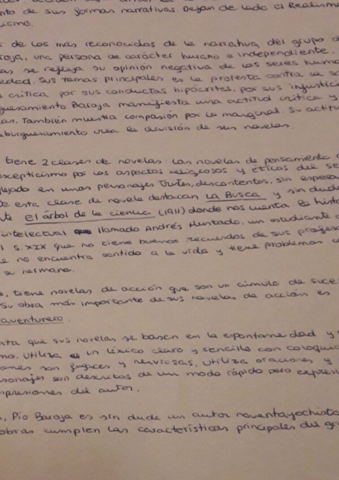 nto de sus formas narrativas dejan de lado el Realismo
lismo.
s de los más reconocidos de la narrativa del grupo d
roja, una persona de carácter huraño e independiente.
ras se refleja su opinión negativa de los seres human
iedad. Sus temas principales es la protesta contra la so
a crítica por sus conductas hipócritas, por sus injustici
guesamiento Baroja manifiesta una actitud crítica y
as. También muestra compasión por lo marginal. Su actitu
aburguesamiento crea la división de sus novelas.
tiene 2 clases de novelas. Las novelas de pensamiento
escepticismo por los aspectos religiosos y éticos del se
en unos personajes tristes, descontentos, sin espera
De esta clase de novela destacan La Busca y sin duda
El árbol de la ciencia (1911) donde nos cuenta la histo
intelectual llamado Andrés Hurtado, un estudiante d
l s XIX que no tiene buenos recuerdos de sus profeso
e no encuentra sentido a la vida y tiene problemas co
su hermano.
, tiene novelas de acción que son un cúmulo de suce
Su obra más importante de sus novelas de acción es
aventurero.
sta que sus novelas se basan en la espontaneidad y
mo. Utiliza un léxico claro y sencillo con coloqui
ones son fugaces y nerviosas, utiliza oraciones y
sonajes son descritos de un modo rápido para expres
mpresiones del autor.
, Pío Baroja es sin duda un autor noventayochista
obras cumplen las características principales del gr